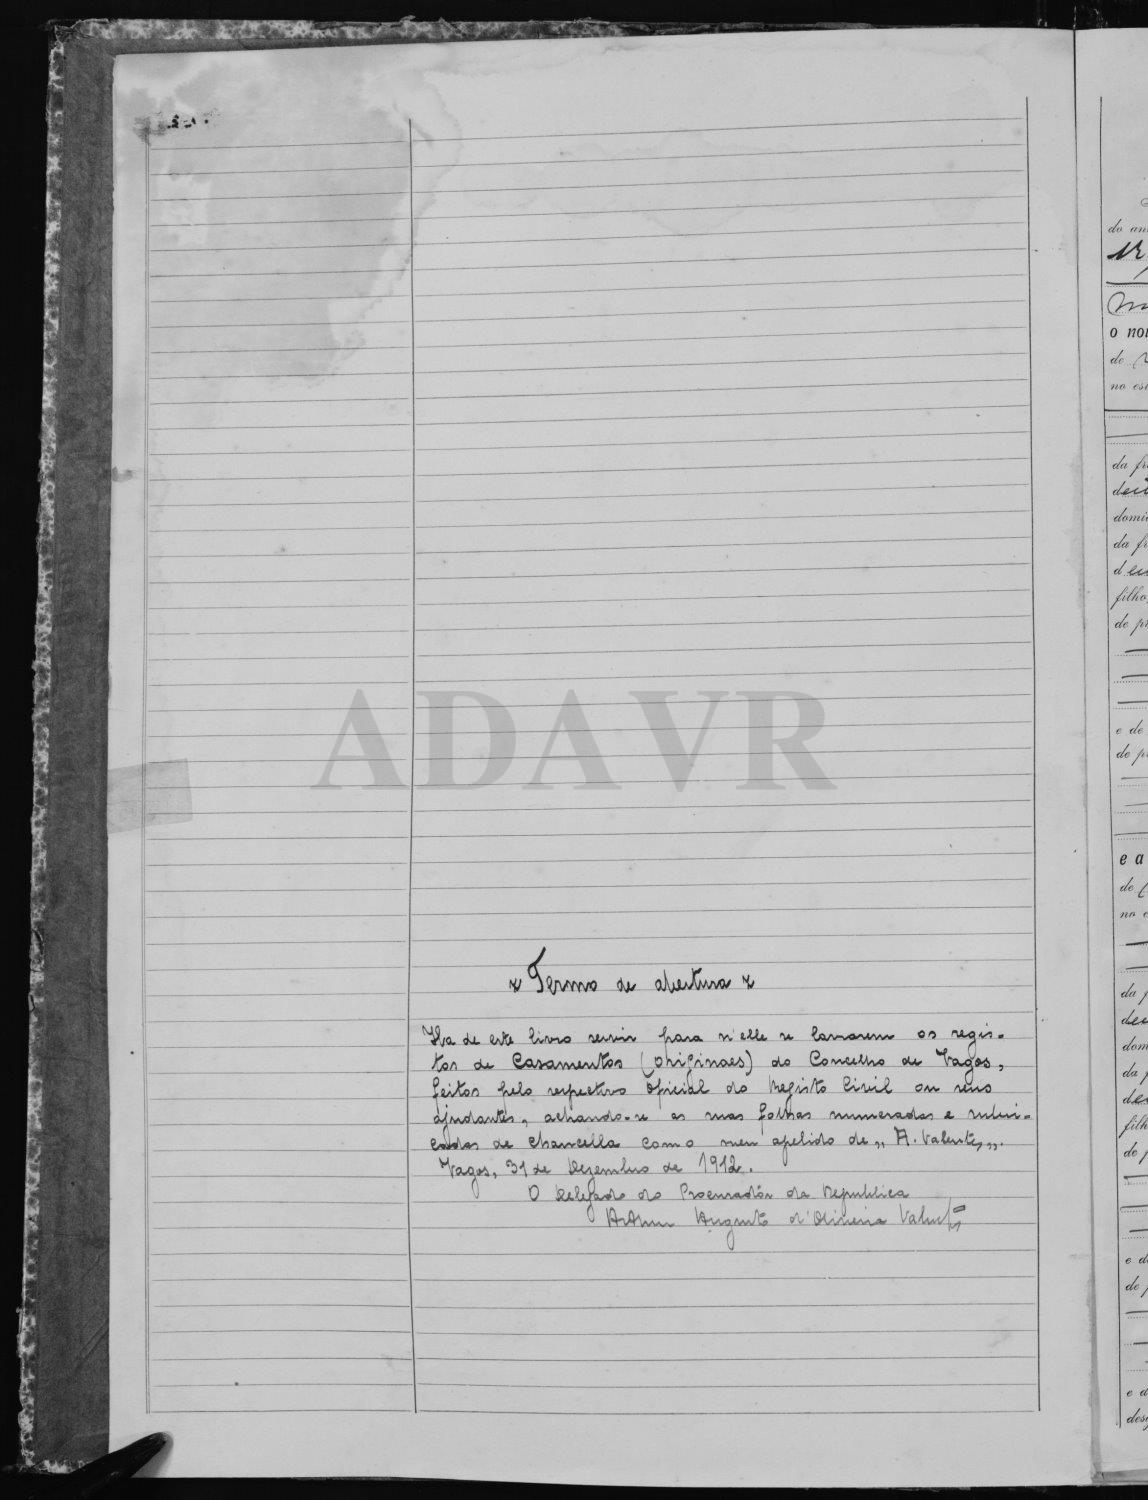 Termo de abertura
Ha de este livro servir para n'elle se lavrarem os regis-
tos de Casamentos (originaes) do Concelho de Vagos,
feitos pelo respectivo Oficial do Registo Civil ou seus
ajudantes, achando-se as suas folhas numeradas e rubri-
cadas de chancella com o meu apelido de „ A. Valente „.
Vagos, 31 de Dezembro de 1912.
O Delegado do Procuradôr da Republica
Arthur Augusto d'Oliveira Valente
ADAVR
do an
o no
de
no es
da fr
dec
domi
da fr
d
filho
de pr
e de
de pr
e a
de
no e
da
dec
dom
da
filh
de p
e d
de p
e d
des